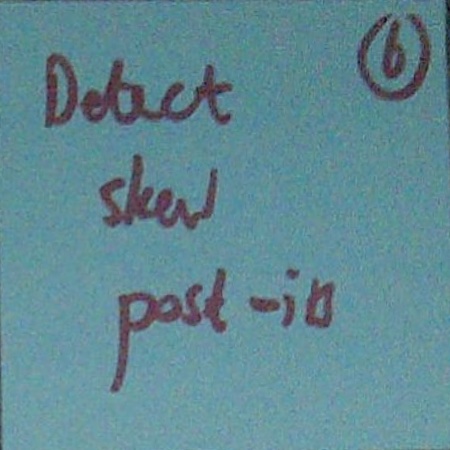 6
Detect
skew
post